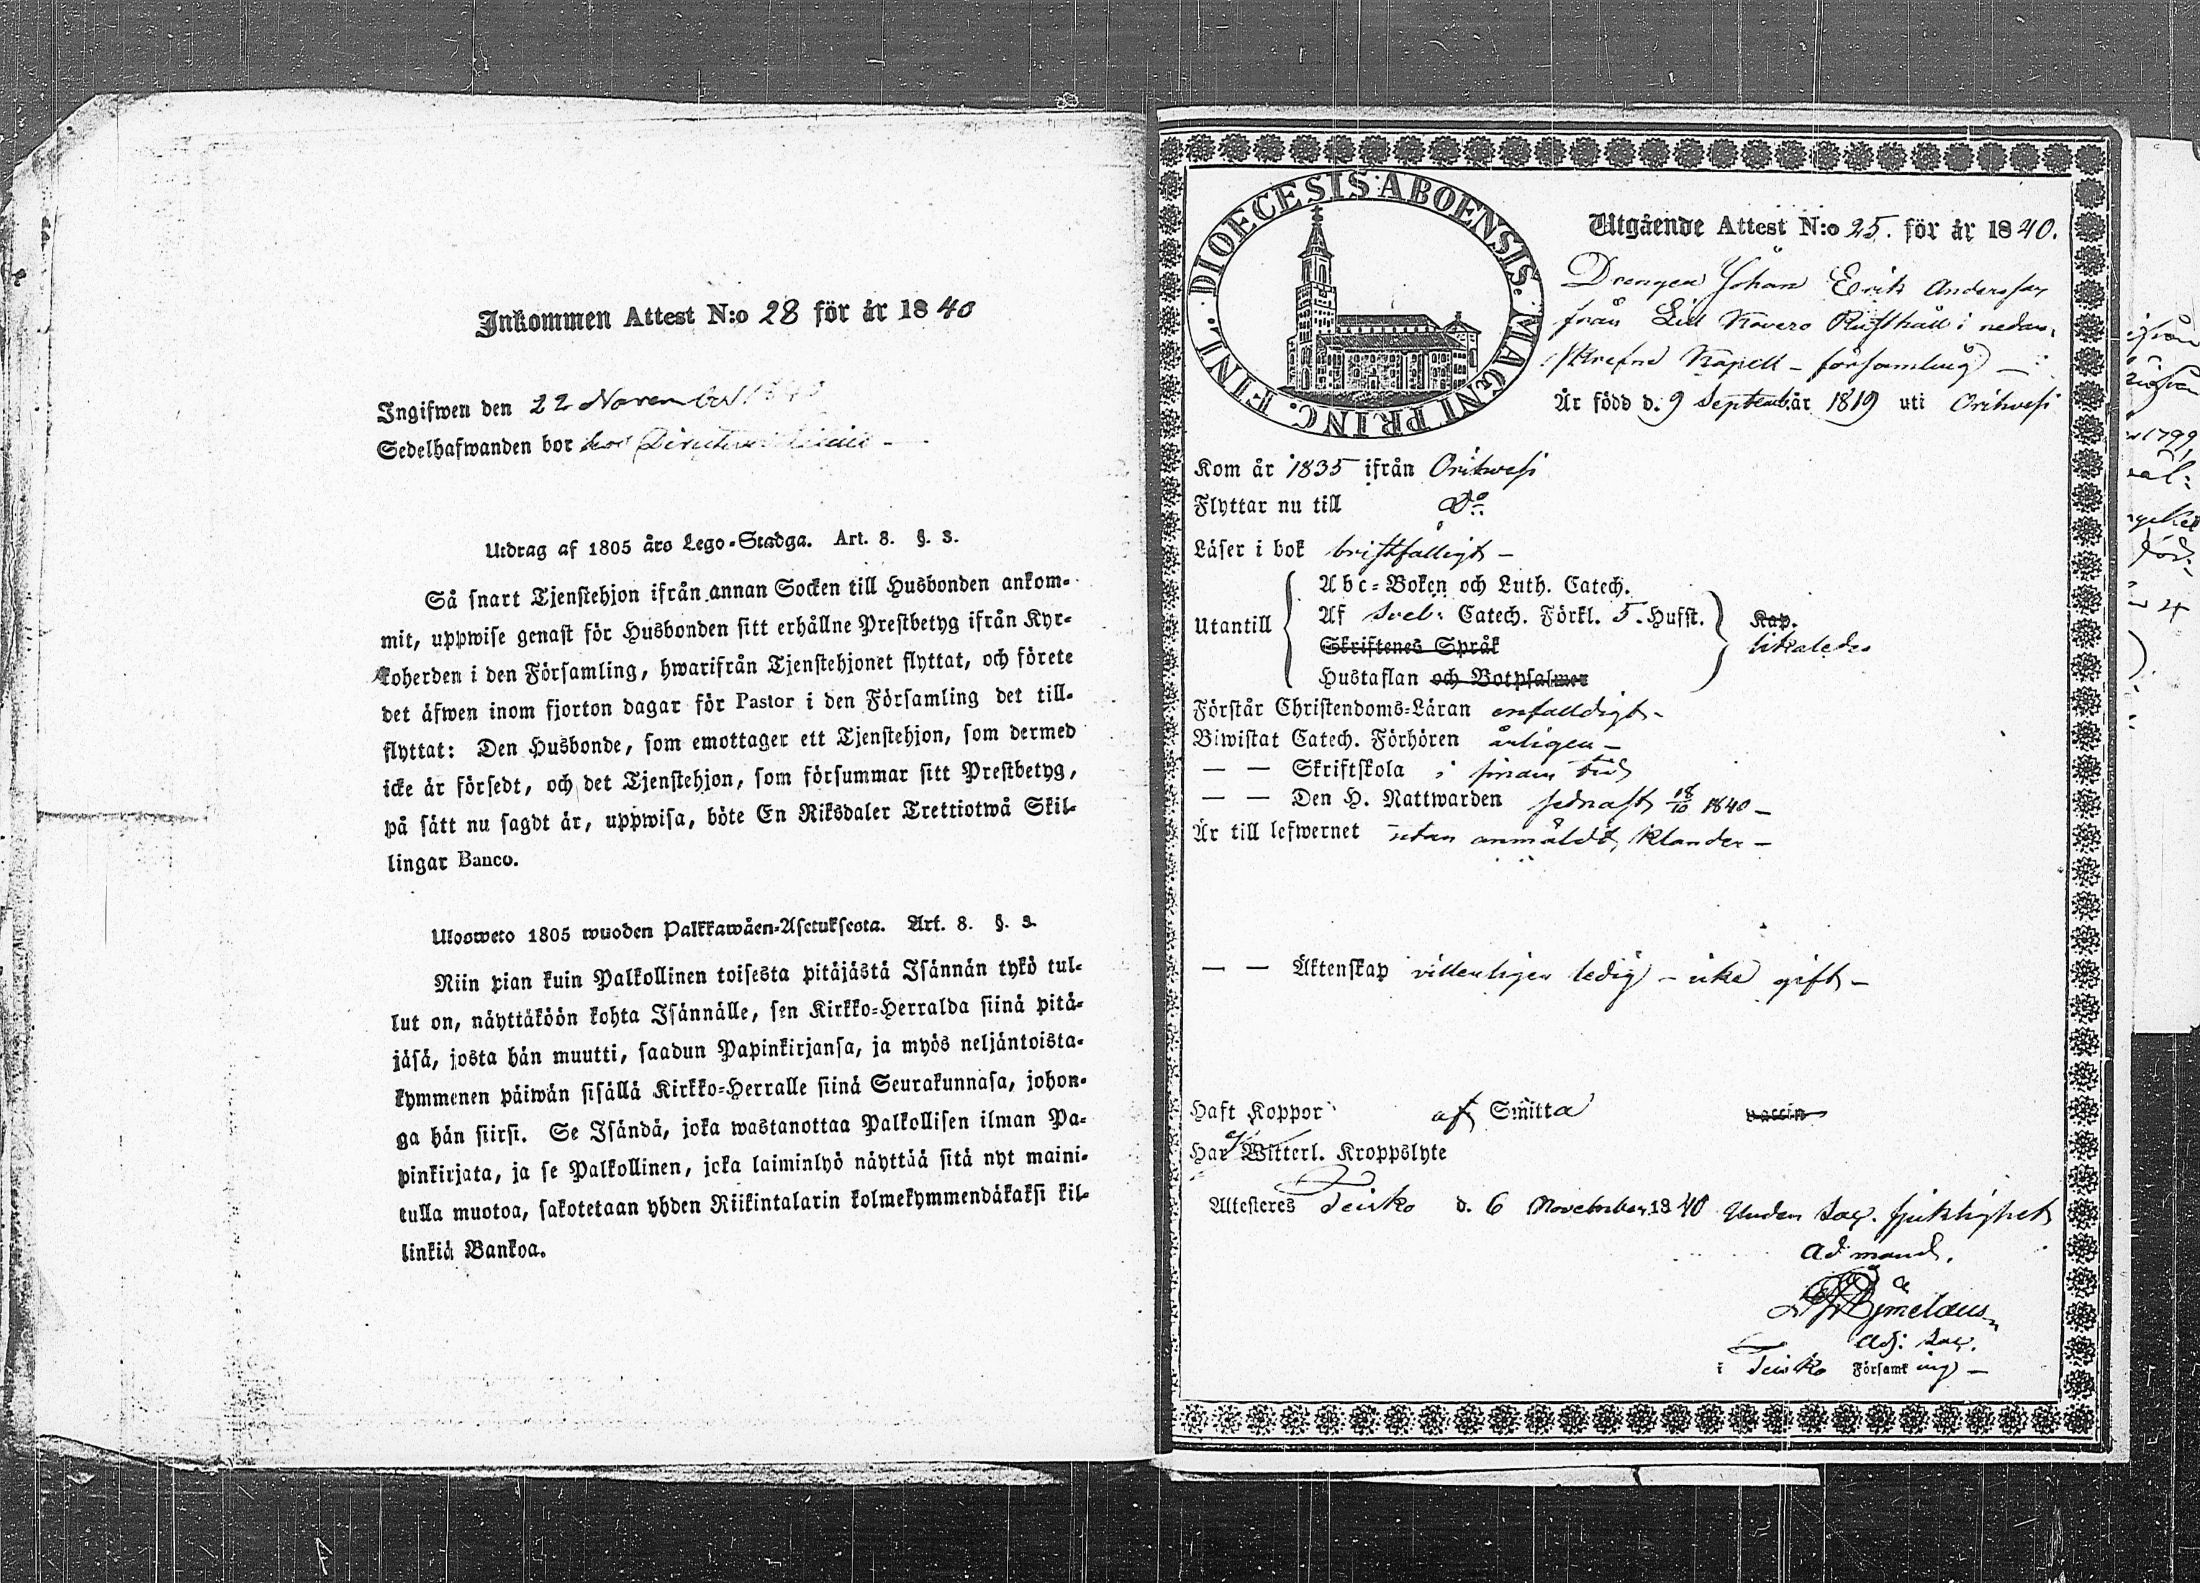 Inkommen Attest N:o 28 för år 1840
Ingifwen den 22 November 1840
Sedelhafwanden bor hos
Utdrag af 1805 års Lego-Stadga. Art. 8. §. 3.
Så snart Tjenstehjon ifrån annan Socken till Husbonden ankom-
mit, uppwise genast för Husbonden sitt erhållne Prestbetyg ifrån Kyr-
koherden i den Församling, hwarifrån Tjenstehjonet flyttat, och förete
det äfwen inom fjorton dagar för Pastor i den Församling det till-
flyttat: Den Husbonde, som emottager ett Tjenstehjon, som dermed
icke är försedt, och det Tjenstehjon, som försummar sitt Prestbetyg,
på sätt nu sagdt är, uppwisa, böte En Riksdaler Trettiotwå Skil-
lingar Banco.
Ulosweto 1805 wuoden Palkkawäen-Asetuksesta. Art. 8. §. 3.
Niin pian kuin Palkollinen toisesta pitäjästä Isännän tykö tul-
lut on, näyttäköön kohta Isännälle, sen Kirkko-Herralda siinä pitä-
jäsä, josta hän muutti, saadun Papinkirjansa, ja myös neljäntoista-
kymmenen päiwän sisällä Kirkko-Herralle siinä Seurakunnasa, johon-
ga hän siirsi. Se Isändä, joka wastanottaa Palkollisen ilman Pa-
pinkirjata, ja se Palkollinen, joka laiminlyö näyttää sitä nyt maini-
tulla muotoa, sakotetaan yhden Riikintalarin kolmekymmendäkaksi kil-
linkiä Bankoa.
DIOECESIS ABOENSIS. MAGNI PRINC. FINL.
Utgående Attest N:o 25. för år 1840.
Drengen Johan Erik Andersson
från Kovero Rusthåll i nedan-
skrefne Kapell-församling
Är född d. 9 September år 1819 uti Orihvesi
Kom år 1835 ifrån Orihvesi
Flyttar nu till Do
Läser i bok bristfälligt -
Abc-Boken och Luth. Catech.
Utantill Af Sveb: Catech. Förkl. 5. Hufst. Kap.
Skriftenes Språk likaledes
Hustaflan och Botpsalmer
Förstår Christendoms-Läran enfalldigt -
Biwistat Catech. Förhören årligen -
— — Skriftskola i sinom tid
— — Den H. Nattwarden sednast 18/10 1840 -
Är till lefwernet utan anmäldt klander -
— — Äktenskap vitterligen ledig - icke gift -
Haft Koppor af Smitta vaccin
Har ej Witterl. Kroppslyte
Attesteres Teisko d. 6 November 1840 Under Sac. sjuklighet
ad mand.
Adj. Sac.
i Teisko Församling -